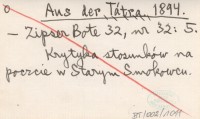 o Aus der Tátra, 1894.
- Zipser Bote 32, nr 32: 5.
Krytyka stosunków na
poczcie w Starym Smokowcu.